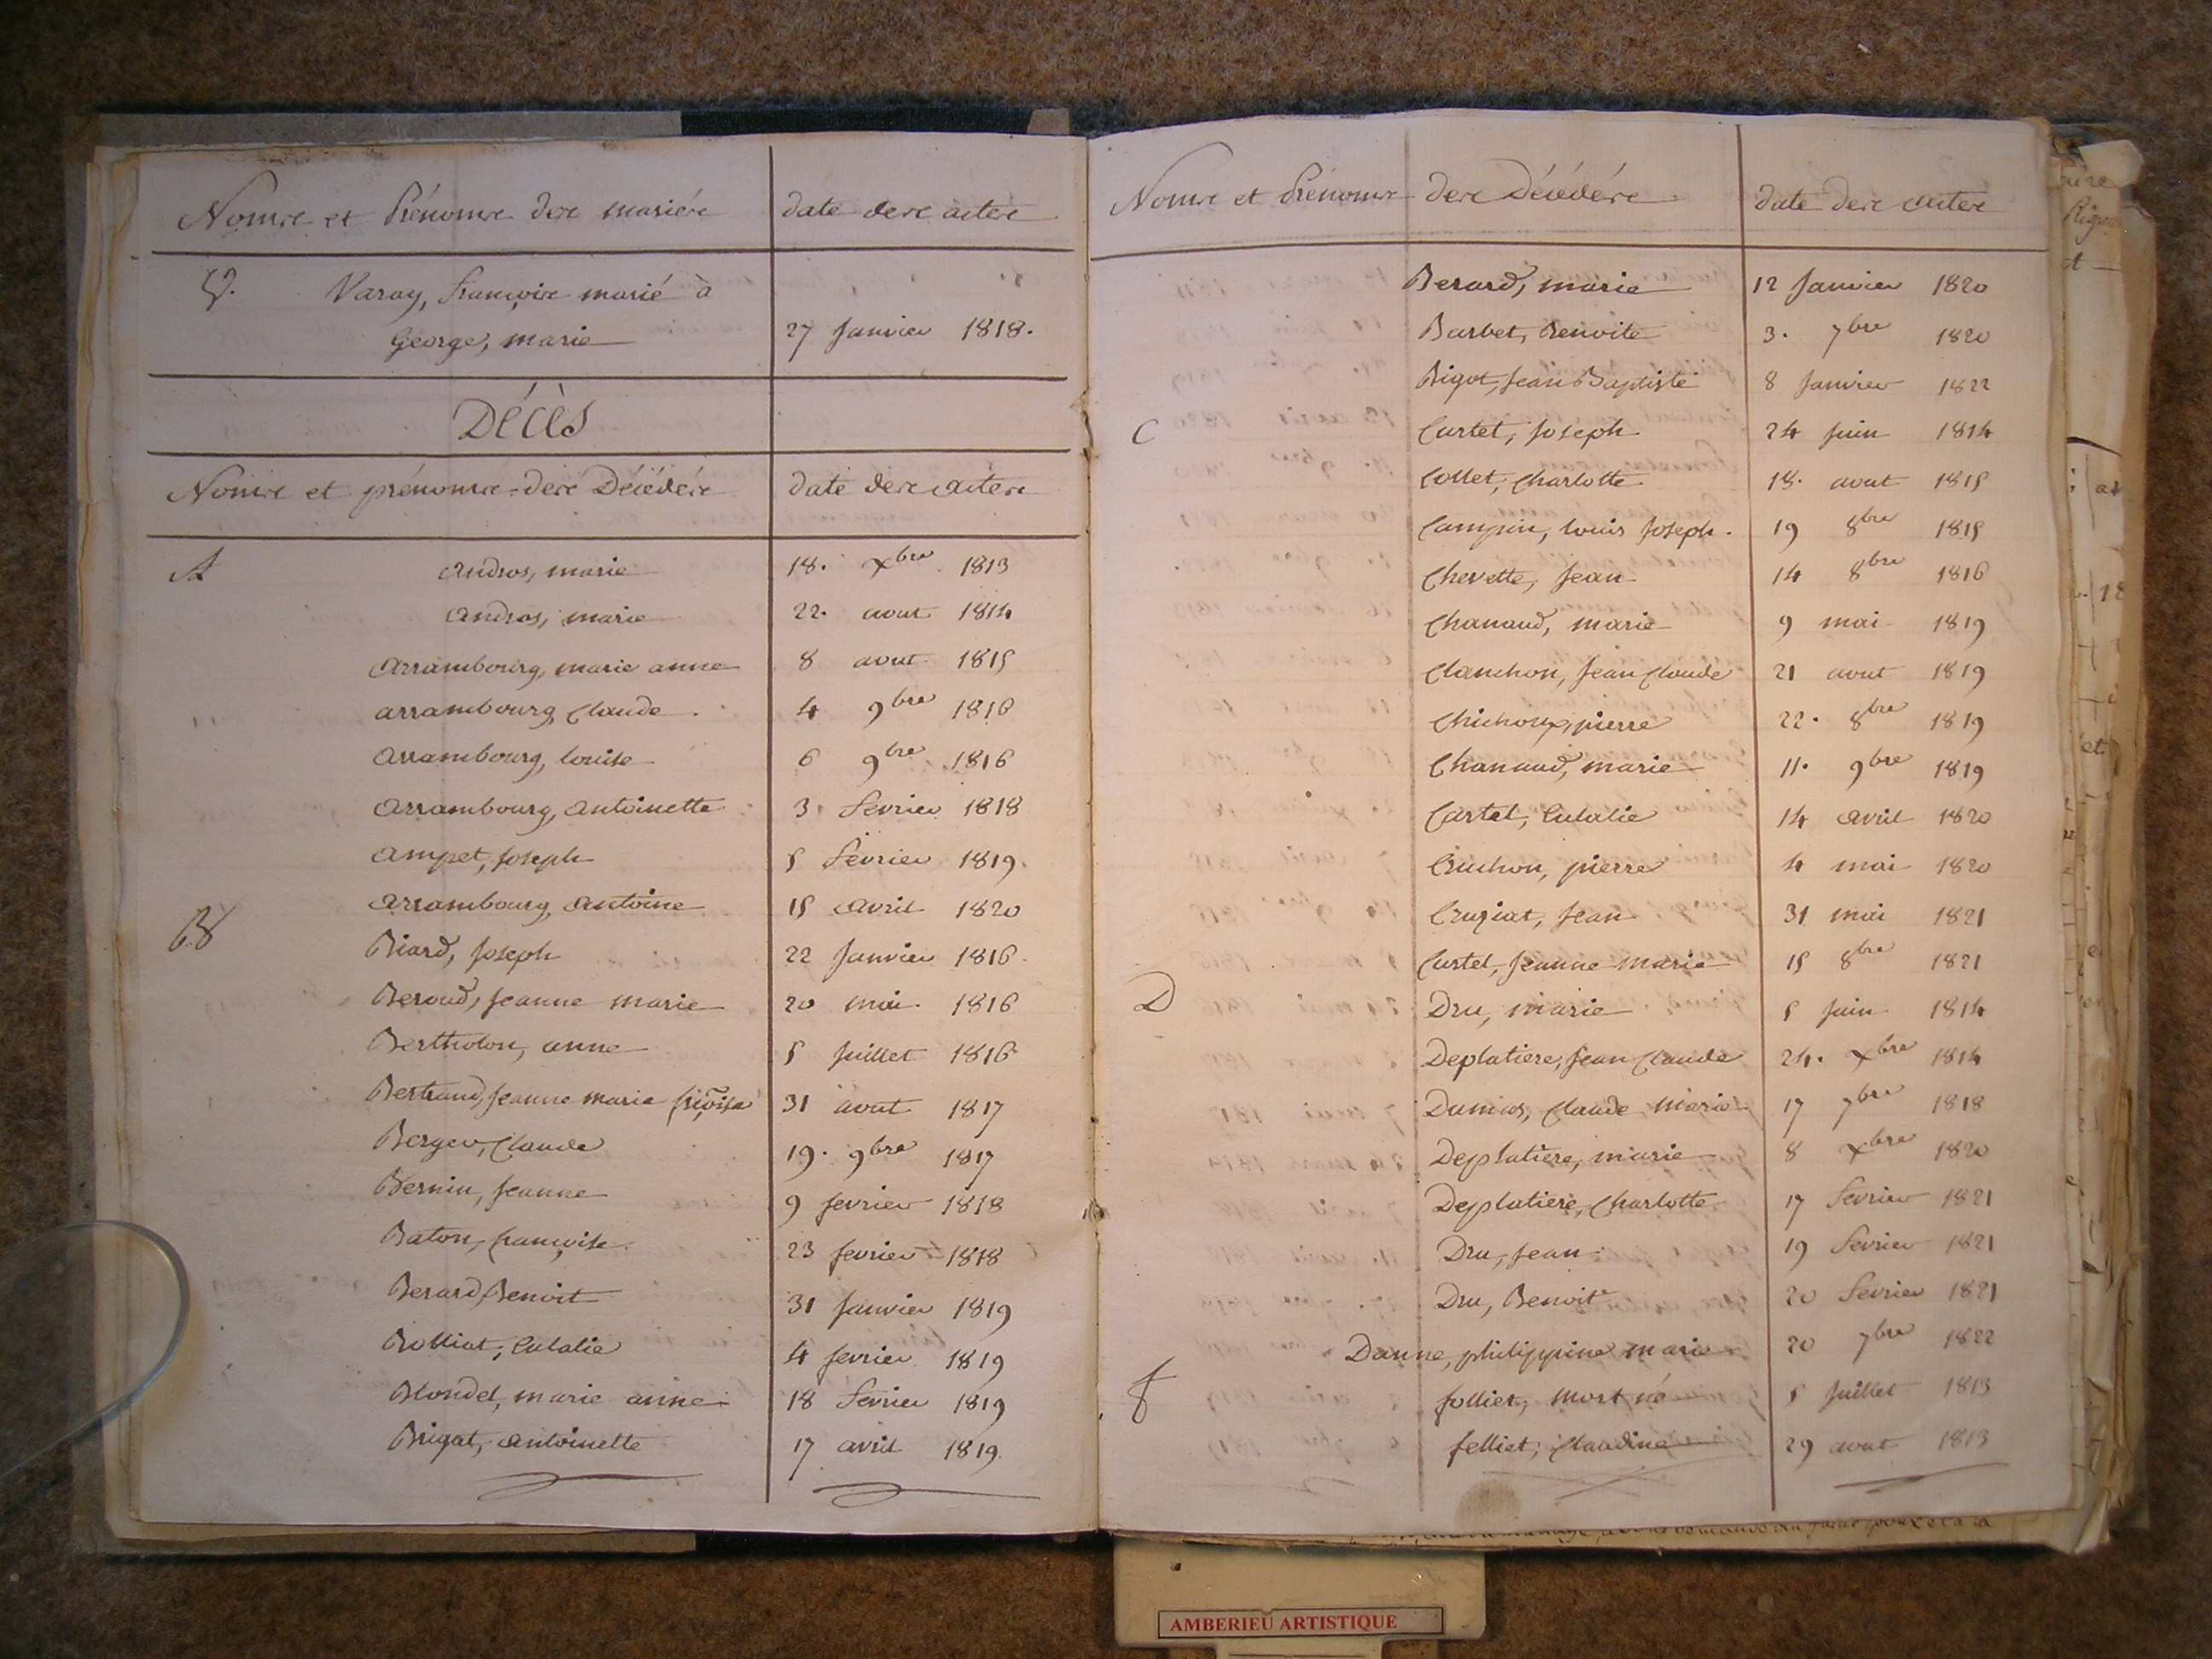 Noms et Prénoms des mariés date des actes
V. Varay, françois marié à
George, marie 27 Janvier 1818.
Décès
Noms et prénoms des Décédés date des actes
A Andros, marie 18. Xbre 1813
Andros, marie 22. aout 1814
Arrambourg, marie anne 8 aout 1815
arrambourg, Claude. 4 9bre 1816
Arrambourg, louise 6 9bre 1816
Arrambourg, Antoinette 3 fevrier 1818
Ampet, Joseph 5 fevrier 1819.
Arrambourg, Antoine 15 Avril 1820
B Biard, Joseph 22 Janvier 1816.
Beroud, Jeanne marie 20 mai 1816
Bertholon, anne 5 Juillet 1816
Bertrand, Jeanne marie frçoise 31 aout 1817
Berger, Claude 19. 9bre 1817
Bernin, Jeanne 9 fevrier 1818
Baton, françoise. 23 fevrier 1818
Berard, Benoit 31 Janvier 1819
Bolliat, Eulalie 4 fevrier 1819
Blondel, marie anne 18 fevrier 1819
Brigat, Antoinette 17 avril 1819.
Noms et Prénoms des Décédés date des actes
Berard, marie 12 Janvier 1820
Barbet, Benoite 3. 7bre 1820
Bigot, Jean Baptiste 8 Janvier 1822
C Curtet, Joseph 24 Juin 1814
Collet, Charlotte 18. aout 1815
Campin, louis Joseph. 19 8bre 1815
Chevette, Jean 14 8bre 1816
Chanaud, marie 9 mai 1819
Clanchon, Jean Claude 21 aout 1819
Chichoux, pierre 22. 8bre 1819
Chanaud, marie 11. 9bre 1819
Cartet, Eulalie 14 Avril 1820
Cruchon, pierre 4 mai 1820
Cruziat, Jean 31 mai 1821
Curtet, Jeanne marie 15 8bre 1821
D Dru, marie 5 Juin 1814
Deplatiere, Jean Claude 24. Xbre 1814
Dumas, Claude Marie 17 7bre 1818
Deplatiere, marie 8 Xbre 1820
Deplatiere, Charlotte 17 fevrier 1821
Dru, Jean. 19 fevrier 1821
Dru, Benoite 20 fevrier 1821
Danne, philippine marie 20 7bre 1822
f folliet, mort né 5 Juillet 1813
felliet, Claudine 29 aout 1813
AMBERIEU ARTISTIQUE